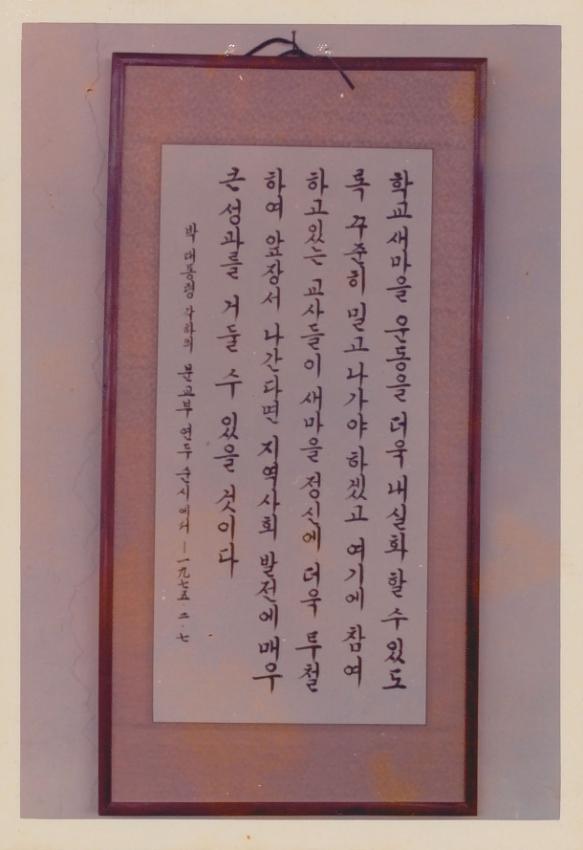 학교 새마을 운동을 더욱 내실화 할 수 있도
록 꾸준히 밀고 나가야 하겠고 여기에 참여
하고있는 교사들이 새마을 정신에 더욱 투철
하여 앞장서 나간다면 지역사회 발전에 매우
큰 성과를 거둘 수 있을 것이다
박 대통령 각하의 문교부 연두 순시에서 — 一九七五·二·七